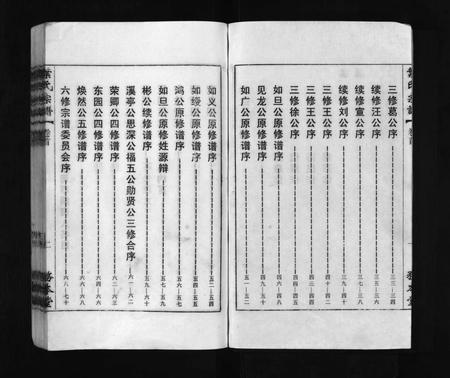 三修葛公序 三三—三四
续修汪公序 三五—三六
续修宣公序 三七
续修刘公序 三九—四十
三修王公序
三修王公序
三修徐公序
如旦公原修谱序 四六—四八
见龙公原修谱序 四九—五十
如广公原修谱序 五一—五二
如义公原修谱序 五二—五四
如绶公原修谱序 五四—五五
鸿公原修谱序 五六—五七
如旦公原修姓源辩 五七—五九
彬公续修谱序 五九—六十
溪亭公思深公福五公勋贤公三修合序 六一—六二
荣卿公四修谱序 六二—六三
东园公四修谱序 六四—六六
焕然公五修谱序 六六—六八
六修宗谱委员会序 六八—七十
葉氏宗譜
卷首
務本堂